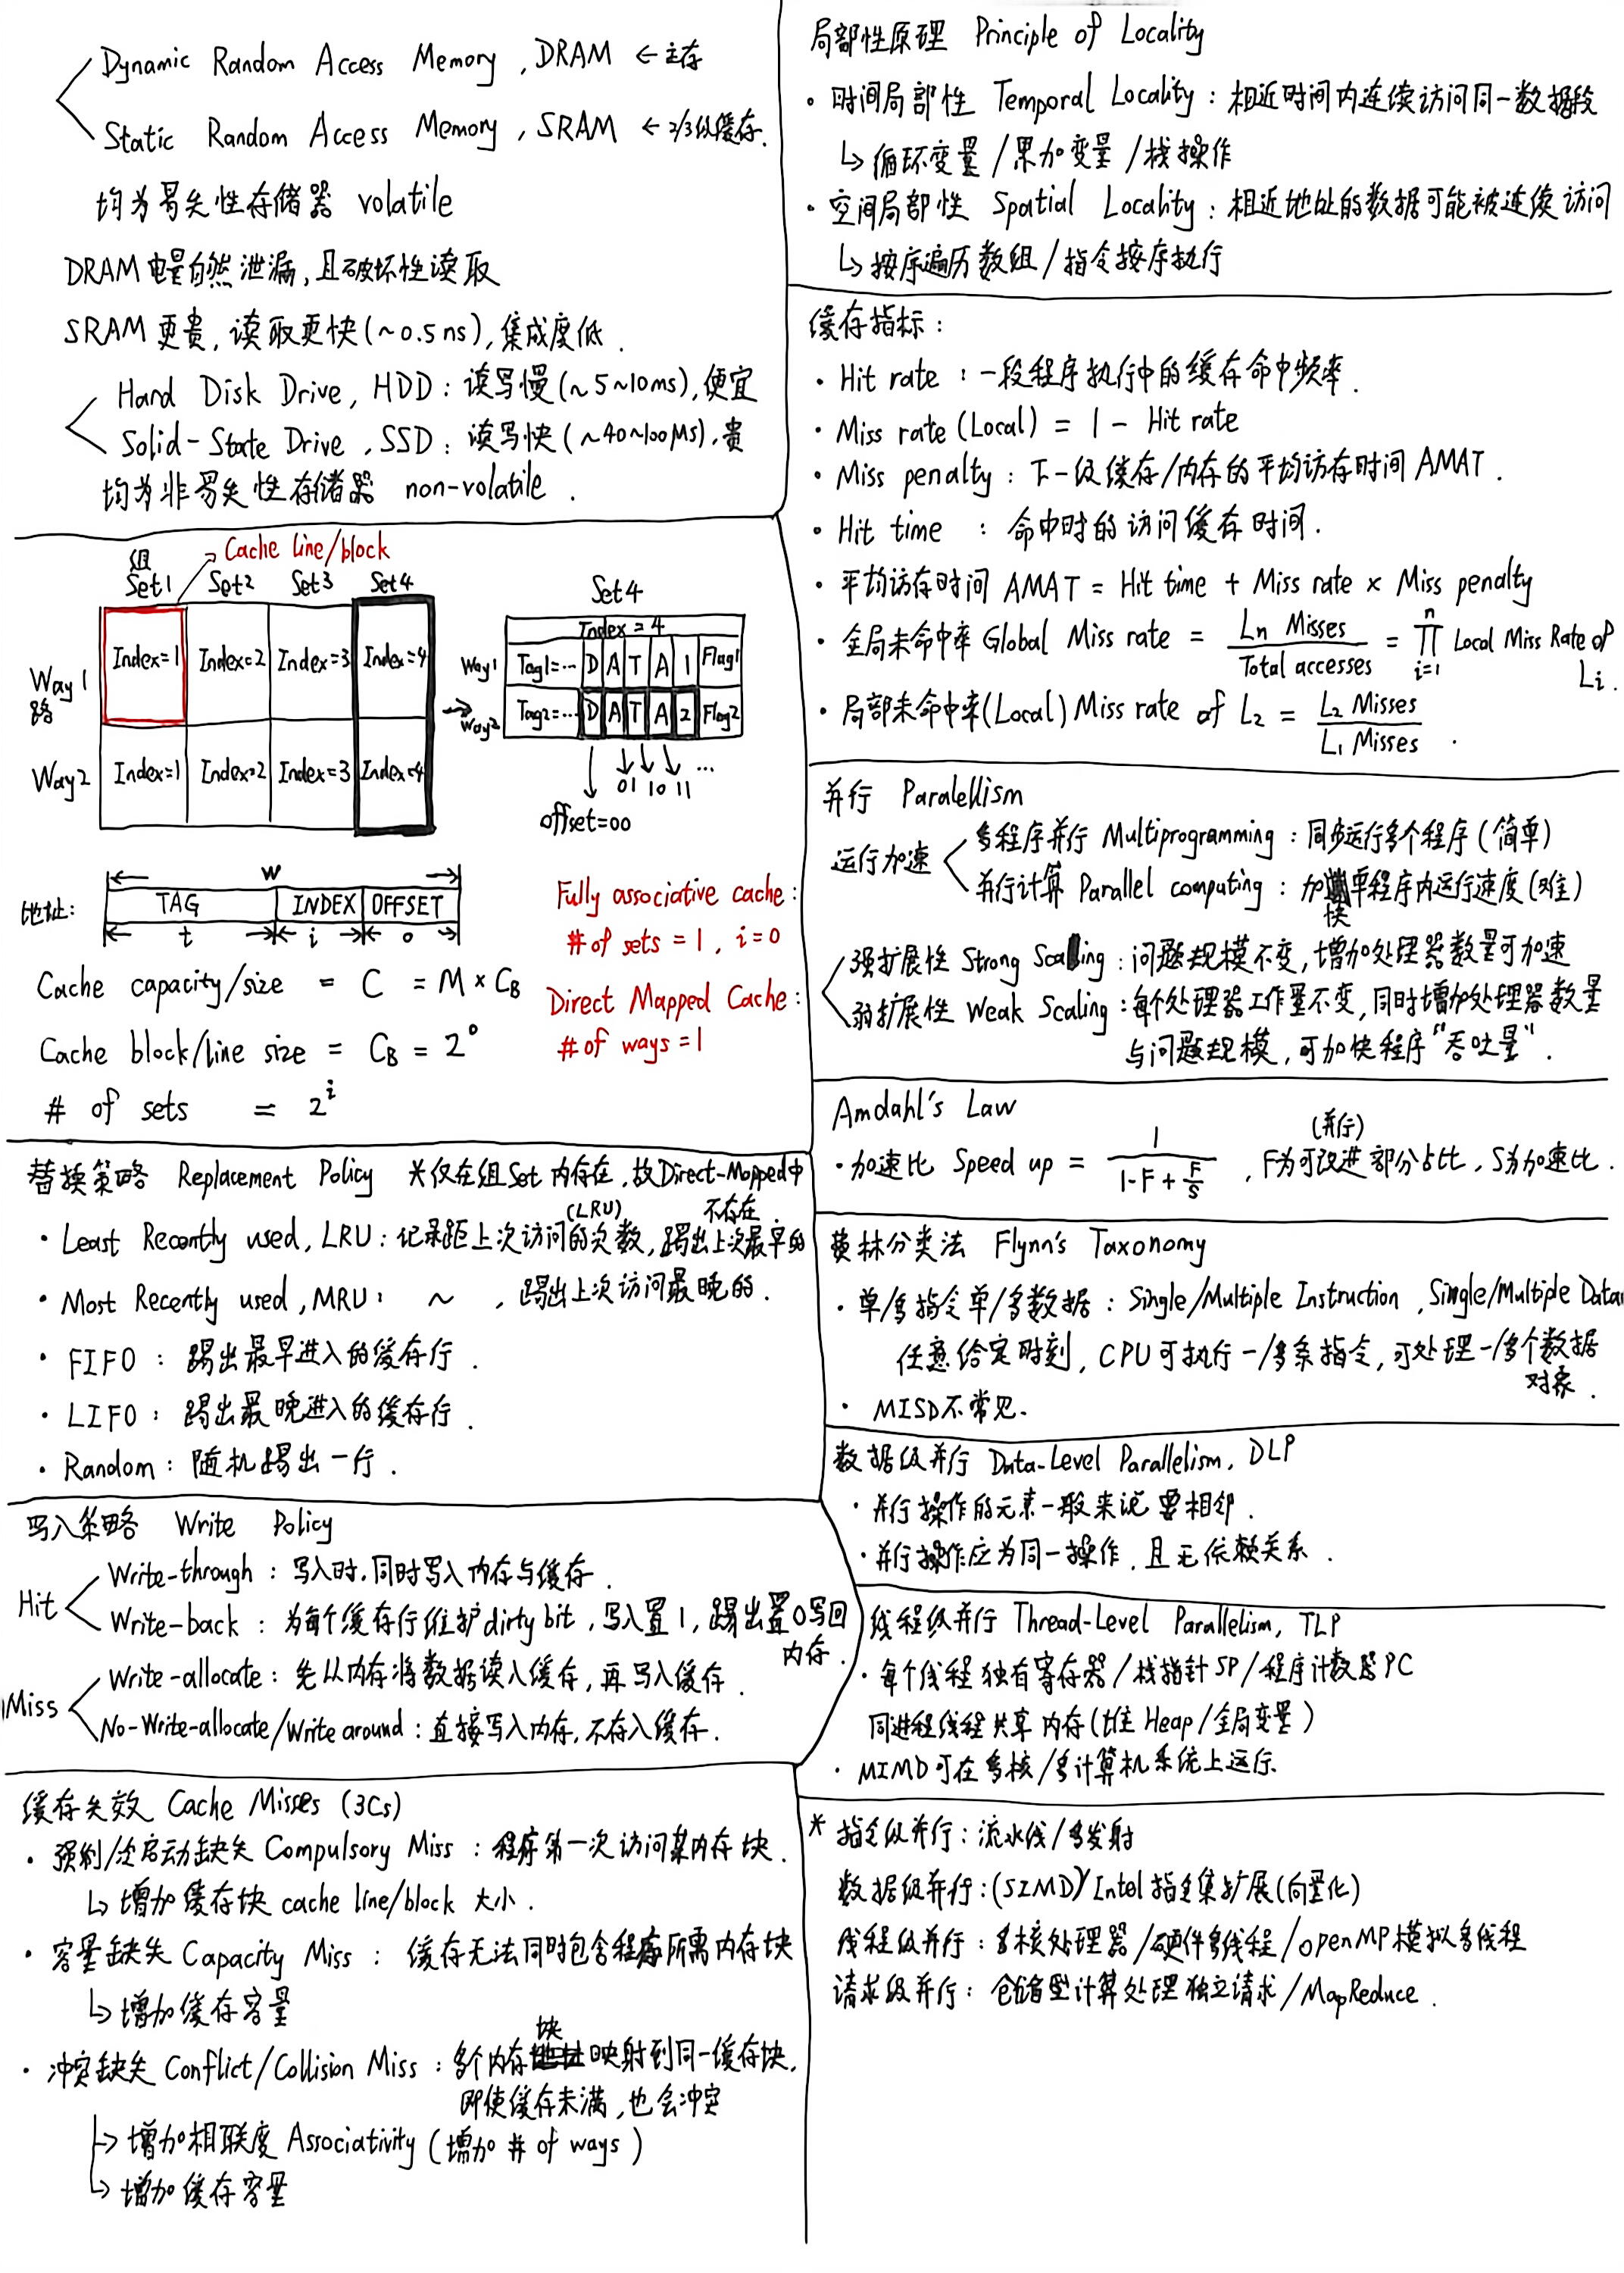 Dynamic Random Access Memory, DRAM ← 主存
Static Random Access Memory, SRAM ← 2/3级缓存.
均为易失性存储器 volatile
DRAM 电量自然泄漏, 且破坏性读取
SRAM 更贵, 读取更快 (~0.5ns), 集成度低.
Hard Disk Drive, HDD: 读写慢 (~5~10ms), 便宜
Solid-State Drive, SSD: 读写快 (~40~100μs), 贵
均为非易失性存储器 non-volatile.
Cache line/block
组
Set1 Set2 Set3 Set4
Way1 Index=1 Index=2 Index=3 Index=4
路
Way2 Index=1 Index=2 Index=3 Index=4
Set4
Index=4
Way1 Tag1=... D A T A 1 Flag1
Way2 Tag2=... D A T A 2 Flag2
01 10 11 ...
offset=00
w
地址: TAG INDEX OFFSET
t i o
Cache capacity/size = C = M × CB
Cache block/line size = CB = 2^o
# of sets = 2^i
Fully associative cache:
# of sets = 1, i=0
Direct Mapped Cache:
# of ways = 1
替换策略 Replacement Policy 米仅在组Set 内存在, 故Direct-Mapped中
不存在
(LRU)
· Least Recently used, LRU: 记录距上次访问的次数, 踢出上次最早的
· Most Recently used, MRU: ~ , 踢出上次访问最晚的.
· FIFO: 踢出最早进入的缓存行.
· LIFO: 踢出最晚进入的缓存行.
· Random: 随机踢出一行.
写入策略 Write Policy
Hit
Write-through: 写入时, 同时写入内存与缓存.
Write-back: 为每个缓存行维护dirty bit, 写入置1, 踢出置0写回
内存.
Miss
Write-allocate: 先从内存将数据读入缓存, 再写入缓存.
No-Write-allocate/Write around: 直接写入内存, 不存入缓存.
缓存失效 Cache Misses (3Cs)
· 强制/冷启动缺失 Compulsory Miss: 程序第一次访问某内存块.
↳ 增加缓存块 cache line/block 大小.
· 容量缺失 Capacity Miss: 缓存无法同时包含程序所需内存块
↳ 增加缓存容量
· 冲突缺失 Conflict/Collision Miss: 多个内存块映射到同一缓存块,
即使缓存未满, 也会冲突
↳ 增加相联度 Associativity (增加 # of ways)
↳ 增加缓存容量
局部性原理 Principle of Locality
· 时间局部性 Temporal Locality: 相近时间内连续访问同一数据段
↳ 循环变量/累加变量/栈操作
· 空间局部性 Spatial Locality: 相近地址的数据可能被连续访问
↳ 按序遍历数组/指令按序执行
缓存指标:
· Hit rate: 一段程序执行中的缓存命中频率.
· Miss rate (Local) = 1 - Hit rate
· Miss penalty: 下一级缓存/内存的平均访存时间 AMAT.
· Hit time: 命中时的访问缓存时间.
· 平均访存时间 AMAT = Hit time + Miss rate × Miss penalty
· 全局未命中率 Global Miss rate = Ln Misses / Total accesses = ∏ i=1 n Local Miss Rate of Li.
· 局部未命中率(Local) Miss rate of L2 = L2 Misses / L1 Misses.
并行 Paralellism
运行加速
多程序并行 Multiprogramming: 同步运行多个程序 (简单)
并行计算 Parallel computing: 加快单程序内运行速度 (难)
强扩展性 Strong Scaling: 问题规模不变, 增加处理器数量可加速
弱扩展性 Weak Scaling: 每个处理器工作量不变, 同时增加处理器数量
与问题规模, 可加快程序"吞吐量".
Amdahl's Law
(并行)
· 加速比 Speed up = 1 / (1-F+F/S), F为可改进部分占比, S为加速比.
费林分类法 Flynn's Taxonomy
· 单/多指令单/多数据: Single/Multiple Instruction, Single/Multiple Data
任意给定时刻, CPU可执行一/多条指令, 可处理一/多个数据
对象.
· MISD不常见.
数据级并行 Data-Level Parallelism, DLP
· 并行操作的元素一般来说要相邻.
· 并行操作应为同一操作, 且无依赖关系.
线程级并行 Thread-Level Parallelism, TLP
· 每个线程独有寄存器/栈指针SP/程序计数器PC
同进程线程共享内存(堆Heap/全局变量)
· MIMD可在多核/多计算机系统上运行.
* 指令级并行: 流水线/多发射
数据级并行: (SIMD) Intel指令集扩展(向量化)
线程级并行: 多核处理器/硬件多线程/openMP模拟多线程
请求级并行: 仓储型计算处理独立请求/MapReduce.